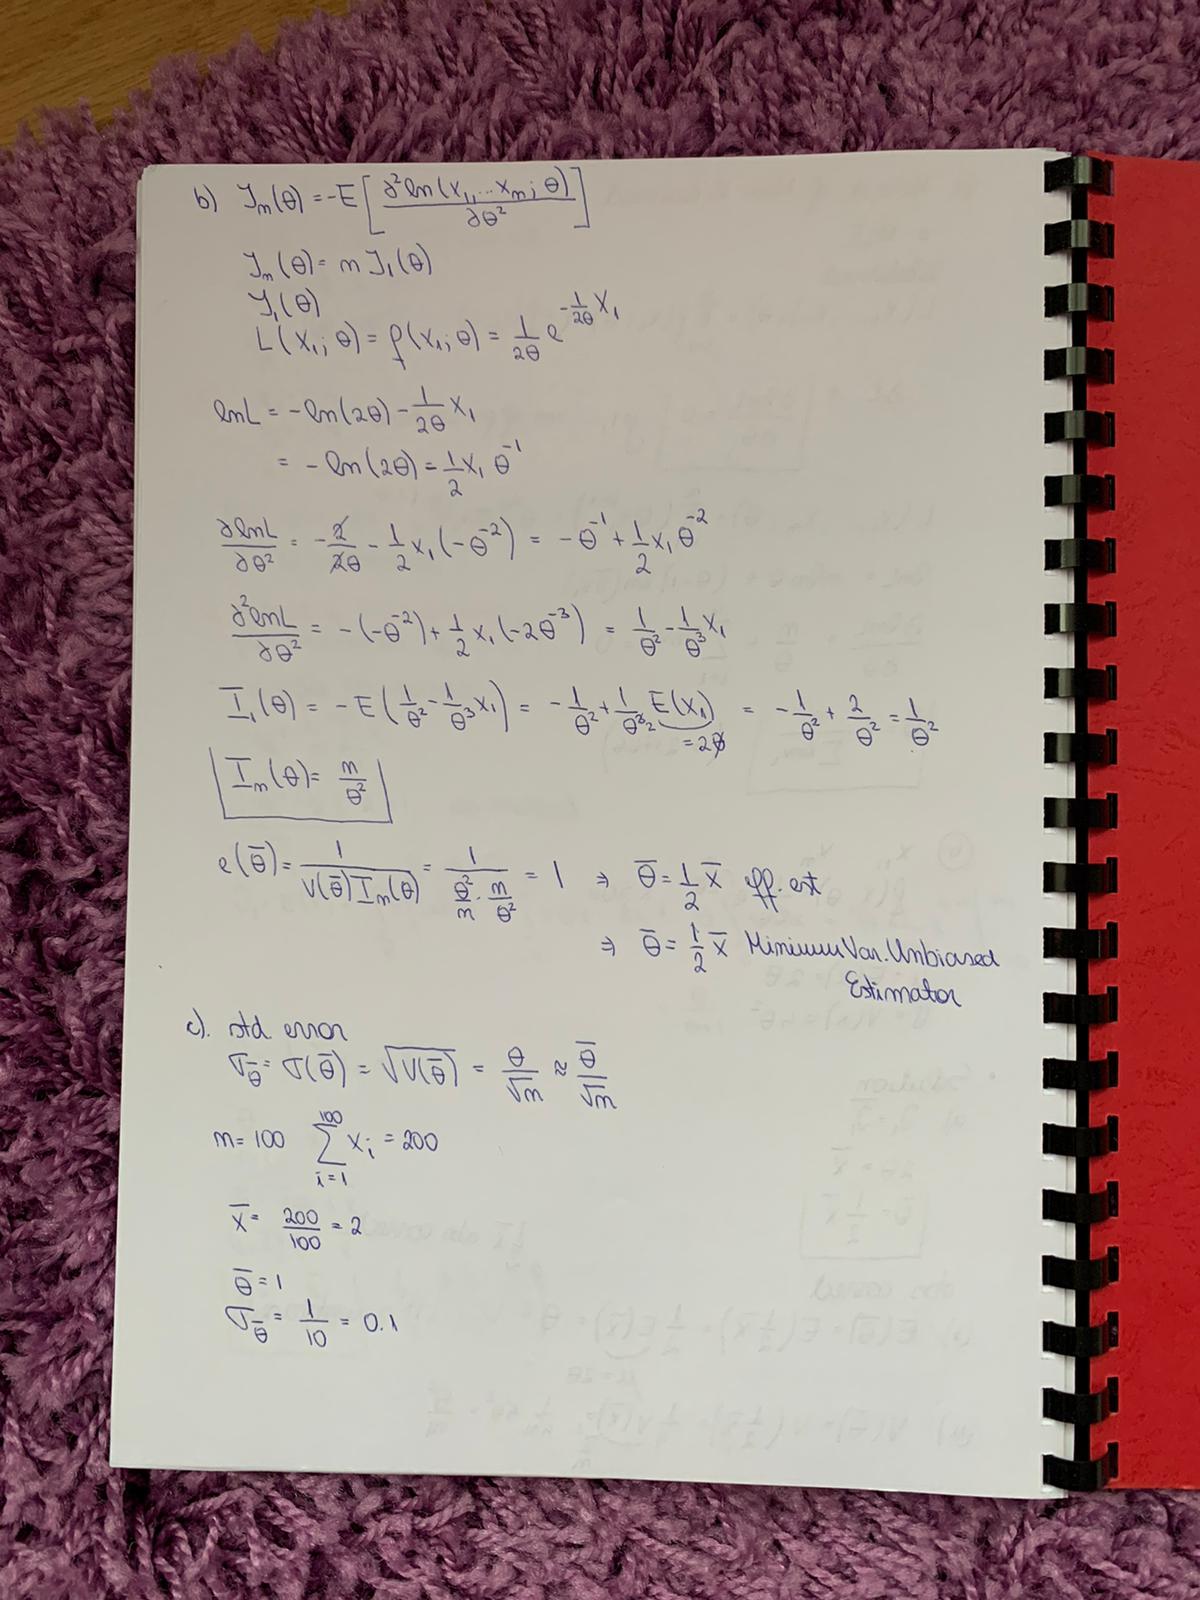 b) I_m(θ) = -E[∂² ln(x₁, ... x_m; θ) / ∂θ²]
I_m(θ) = m I₁(θ)
I₁(θ)
L(x₁; θ) = f(x₁; θ) = 1/2θ e^(-1/2θ x₁)
lnL = -ln(2θ) - 1/2θ x₁
= -ln(2θ) = 1/2 x₁ θ⁻¹
∂lnL/∂θ² = -2/2θ - 1/2 x₁(-θ⁻²) = -θ⁻¹ + 1/2 x₁ θ⁻²
∂²lnL/∂θ² = -(-θ⁻²) + 1/2 x₁(-2θ⁻³) = 1/θ² - 1/θ³ x₁
I₁(θ) = -E(1/θ² - 1/θ³ x₁) = -1/θ² + 1/θ³₂ E(x₁) = -1/θ² + 2/θ² = 1/θ²
= 2θ
I_m(θ) = m/θ²
e(θ̄) = 1/(V(θ̄) I_m(θ)) = 1/(θ²/m · m/θ²) = 1 ⇒ θ̄ = 1/2 x̄ eff. est
⇒ θ̄ = 1/2 x̄ Minimum Var. Unbiased
Estimator
c). std error
σ_θ̄ = σ(θ̄) = √V(θ̄) = θ/√m ≈ θ̄/√m
m = 100 ∑_{i=1}^{100} x_i = 200
x̄ = 200/100 = 2
θ̄ = 1
σ_θ̄ = 1/10 = 0.1